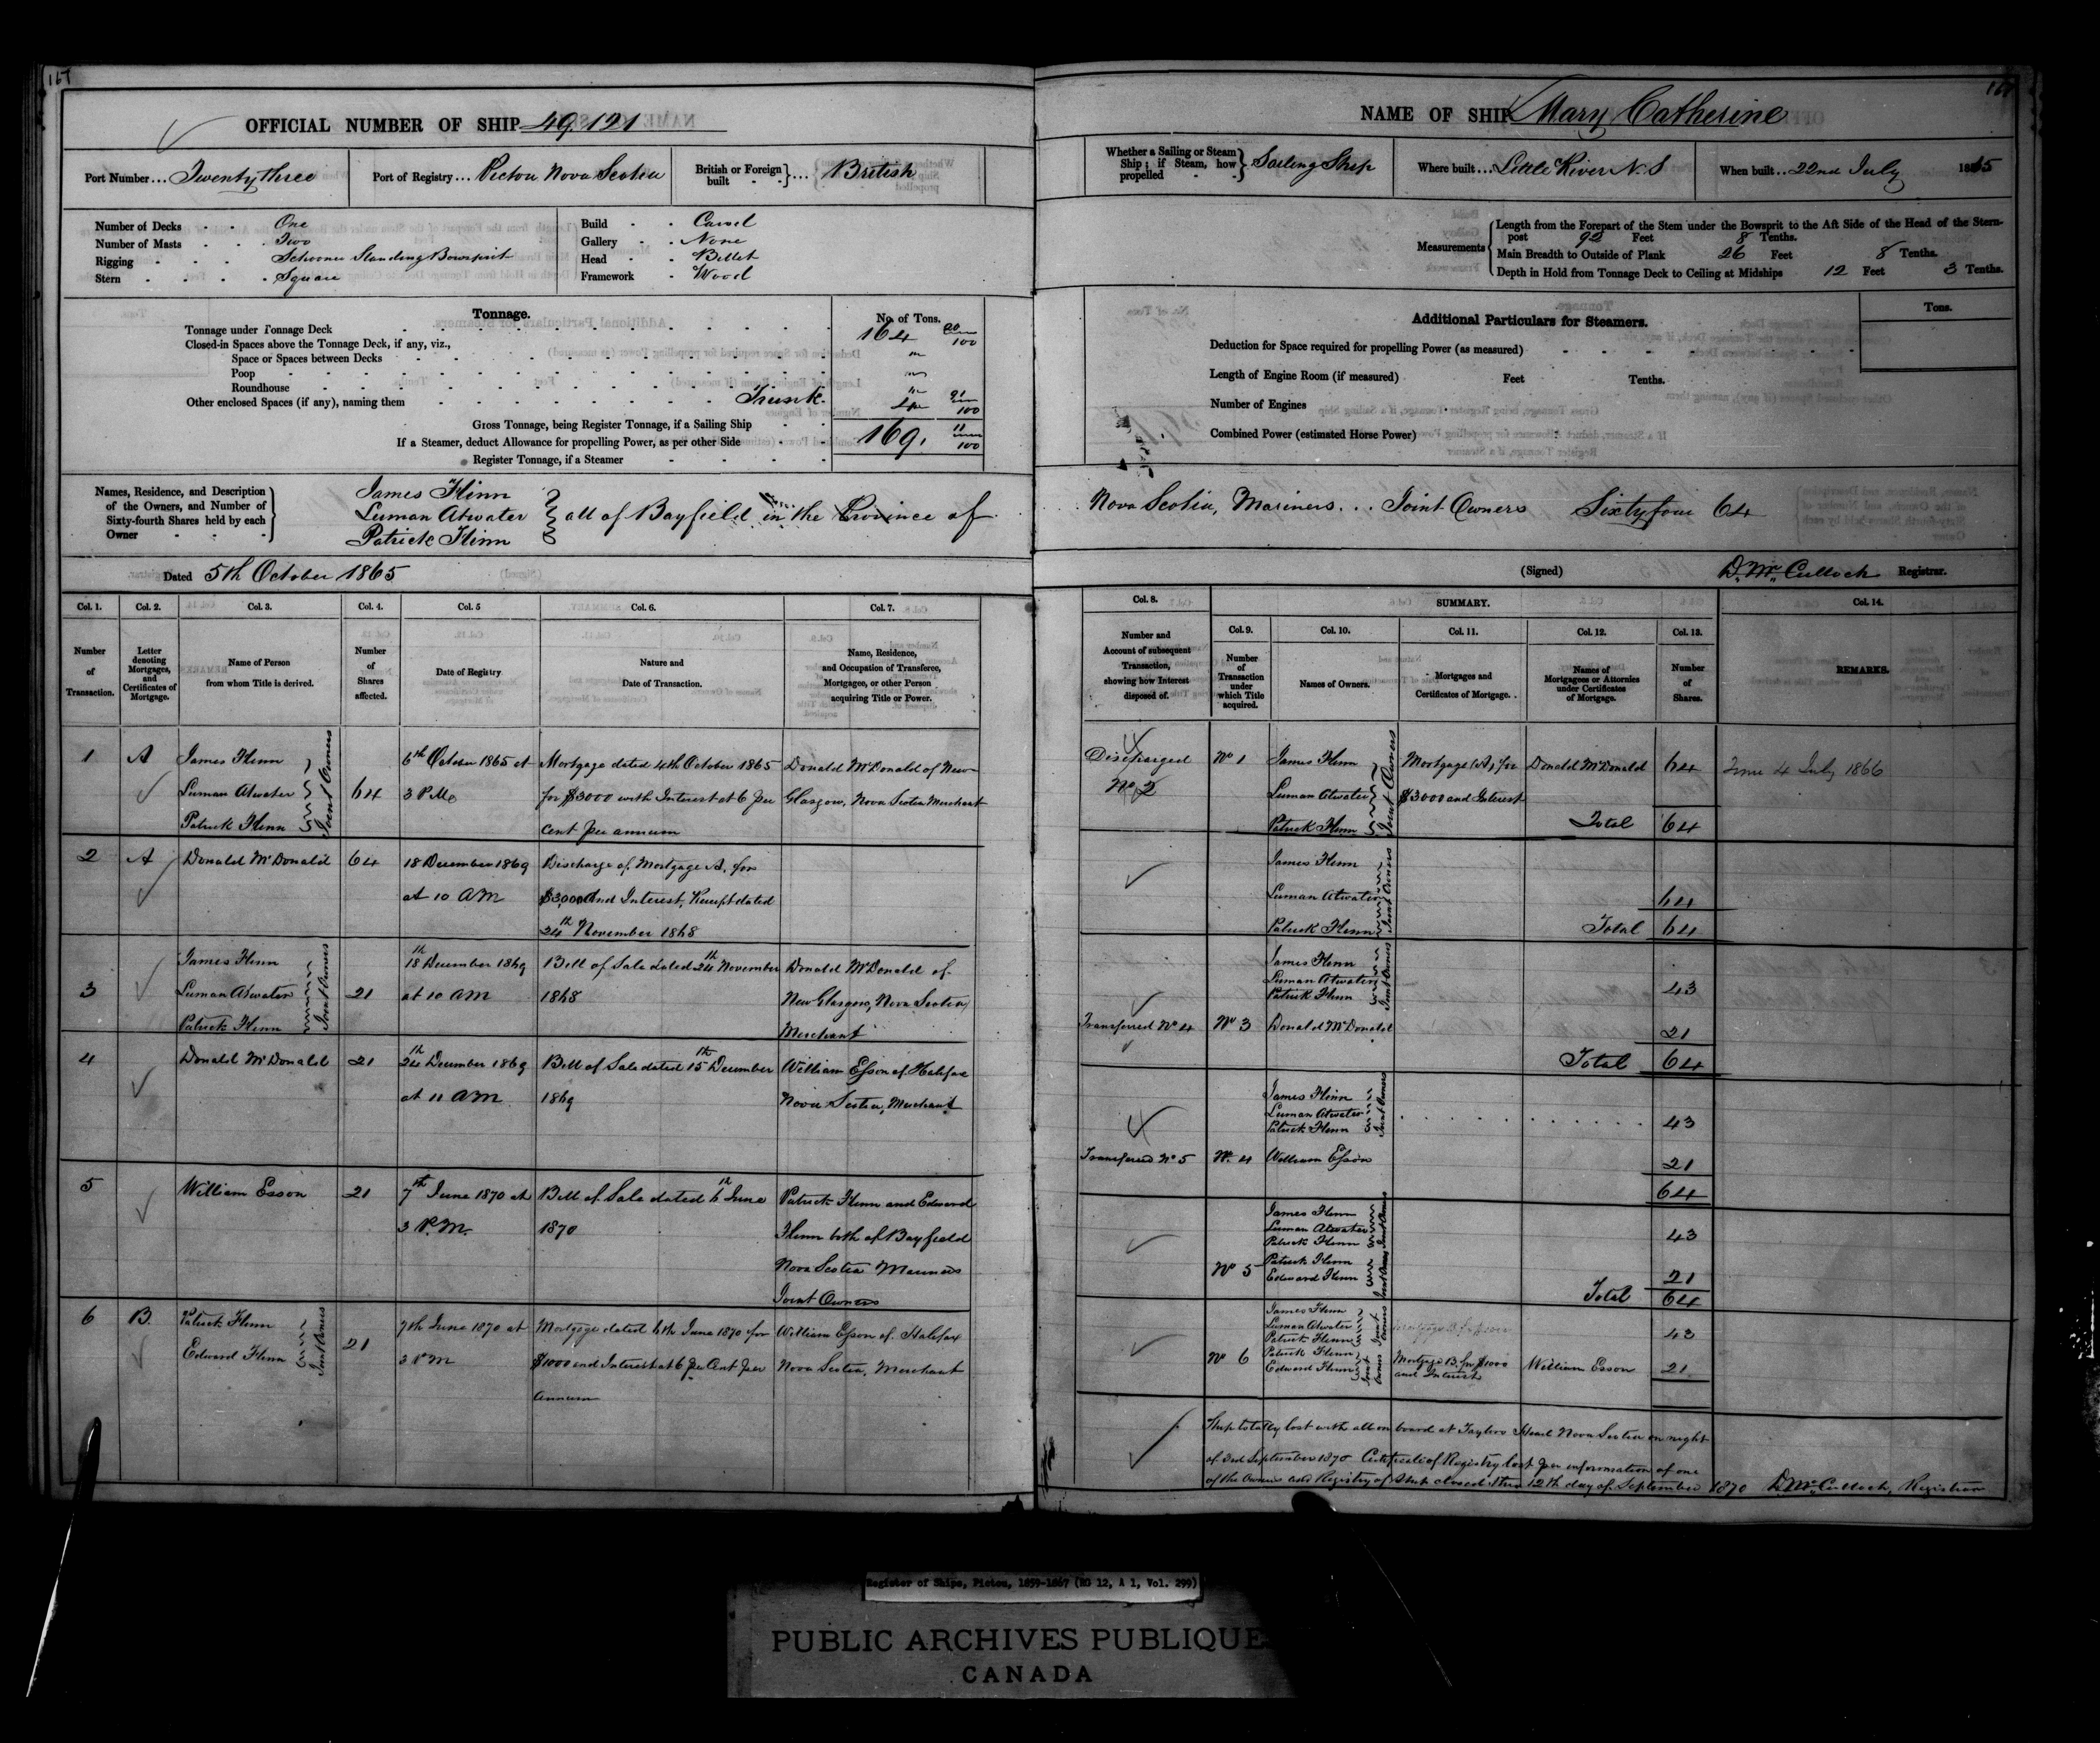 167
OFFICIAL NUMBER OF SHIP 49,121
Port Number... Twenty three
Port of Registry... Pictou Nova Scotia
British or Foreign built } ... British
Number of Decks One
Number of Masts Two
Rigging Schooner Standing Bowsprit
Stern Square
Build Carvel
Gallery None
Head Billet
Framework Wood
Tonnage.
No. of Tons.
Tonnage under Tonnage Deck 164 20/100
Closed-in Spaces above the Tonnage Deck, if any, viz.,
Space or Spaces between Decks
Poop
Roundhouse
Other enclosed Spaces (if any), naming them Trunk. 4 91/100
Gross Tonnage, being Register Tonnage, if a Sailing Ship 169. 11/100
If a Steamer, deduct Allowance for propelling Power, as per other Side
Register Tonnage, if a Steamer
Names, Residence, and Description of the Owners, and Number of Sixty-fourth Shares held by each Owner
James Flinn
Luman Atwater
Patrick Flinn
all of Bayfield in the Province of
Dated 5th October 1865
Col. 1. Col. 2. Col. 3. Col. 4. Col. 5 Col. 6. Col. 7.
Number of Transaction.
Letter denoting Mortgages, and Certificates of Mortgage.
Name of Person from whom Title is derived.
Number of Shares affected.
Date of Registry
Nature and Date of Transaction.
Name, Residence, and Occupation of Transferee, Mortgagee, or other Person acquiring Title or Power.
1 A James Flinn
Luman Atwater
Patrick Flinn
Joint Owners
64
6th October 1865 at
3 P.M.
Mortgage dated 4th October 1865
for $3000 with Interest at 6 per
Cent per annum
Donald McDonald of New
Glasgow, Nova Scotia Merchant
2 A Donald McDonald 64
18 December 1869
at 10 AM
Discharge of Mortgage A, for
$3,000 and Interest, Receipt dated
24th November 1868
3 James Flinn
Luman Atwater
Patrick Flinn
Joint Owners
21
18th December 1869
at 10 AM
Bill of Sale dated 24th November
1868
Donald McDonald of
New Glasgow, Nova Scotia
Merchant
4 Donald McDonald 21
24th December 1869
at 11 AM
Bill of Sale dated 15th December
1869
William Esson of Halifax
Nova Scotia, Merchant
5 William Esson 21
7th June 1870 at
3 P.M.
Bill of Sale dated 6th June
1870
Patrick Flinn and Edward
Flinn both of Bayfield
Nova Scotia Mariners
Joint Owners
6 B. Patrick Flinn
Edward Flinn
Joint Owners
21
7th June 1870 at
3 P M
Mortgage dated 6th June 1870 for
$1000 and Interest at 6 per Cent per
Annum
William Esson of Halifax
Nova Scotia, Merchant
NAME OF SHIP Mary Catherine
Whether a Sailing or Steam Ship; if Steam, how propelled } Sailing Ship
Where built... Little River N.S
When built.. 22nd July 1865
Measurements
Length from the Forepart of the Stem under the Bowsprit to the Aft Side of the Head of the Stern-
post 92 Feet 8 Tenths.
Main Breadth to Outside of Plank 26 Feet 8 Tenths.
Depth in Hold from Tonnage Deck to Ceiling at Midships 12 Feet 3 Tenths.
Additional Particulars for Steamers.
Tons.
Deduction for Space required for propelling Power (as measured)
Length of Engine Room (if measured) Feet Tenths.
Number of Engines
Combined Power (estimated Horse Power)
Nova Scotia, Mariners... Joint Owners Sixty four 64
(Signed) D. McCulloch Registrar.
Col. 8. SUMMARY. Col. 14.
Col. 9. Col. 10. Col. 11. Col. 12. Col. 13.
Number and Account of subsequent Transaction, showing how Interest disposed of.
Number of Transaction under which Title acquired.
Names of Owners.
Mortgages and Certificates of Mortgage.
Names of Mortgagees or Attornies under Certificates of Mortgage.
Number of Shares.
REMARKS.
Discharged
No 2
No 1
James Flinn
Luman Atwater
Patrick Flinn
Joint Owners
Mortgage (A) for
$3000 and Interest
Donald McDonald 64
Total 64
4 July 1866
James Flinn
Luman Atwater
Patrick Flinn
Joint Owners
64
Total 64
James Flinn
Luman Atwater
Patrick Flinn
Joint Owners
43
Transferred No 4 No 3 Donald McDonald 21
Total 64
James Flinn
Luman Atwater
Patrick Flinn
Joint Owners
43
Transferred No 5 No. 4 William Esson 21
64
James Flinn
Luman Atwater
Patrick Flinn
Joint Owners
43
No 5
Patrick Flinn
Edward Flinn
Joint Owners
21
Total 64
James Flinn
Luman Atwater
Patrick Flinn
Joint Owners
43
No 6
Patrick Flinn
Edward Flinn
Joint Owners
Mortgage B. for $1000
and Interest
William Esson 21
Ship totally lost with all on board at Taylors Head Nova Scotia on night
of 3rd September 1870 Certificate of Registry lost per information of one
of the Owners and Registry of Ship closed this 12th day of September 1870 D. McCulloch, Registrar
Register of Ships, Pictou, 1859-1867 (RG 12, A 1, Vol. 299)
PUBLIC ARCHIVES PUBLIQUE
CANADA